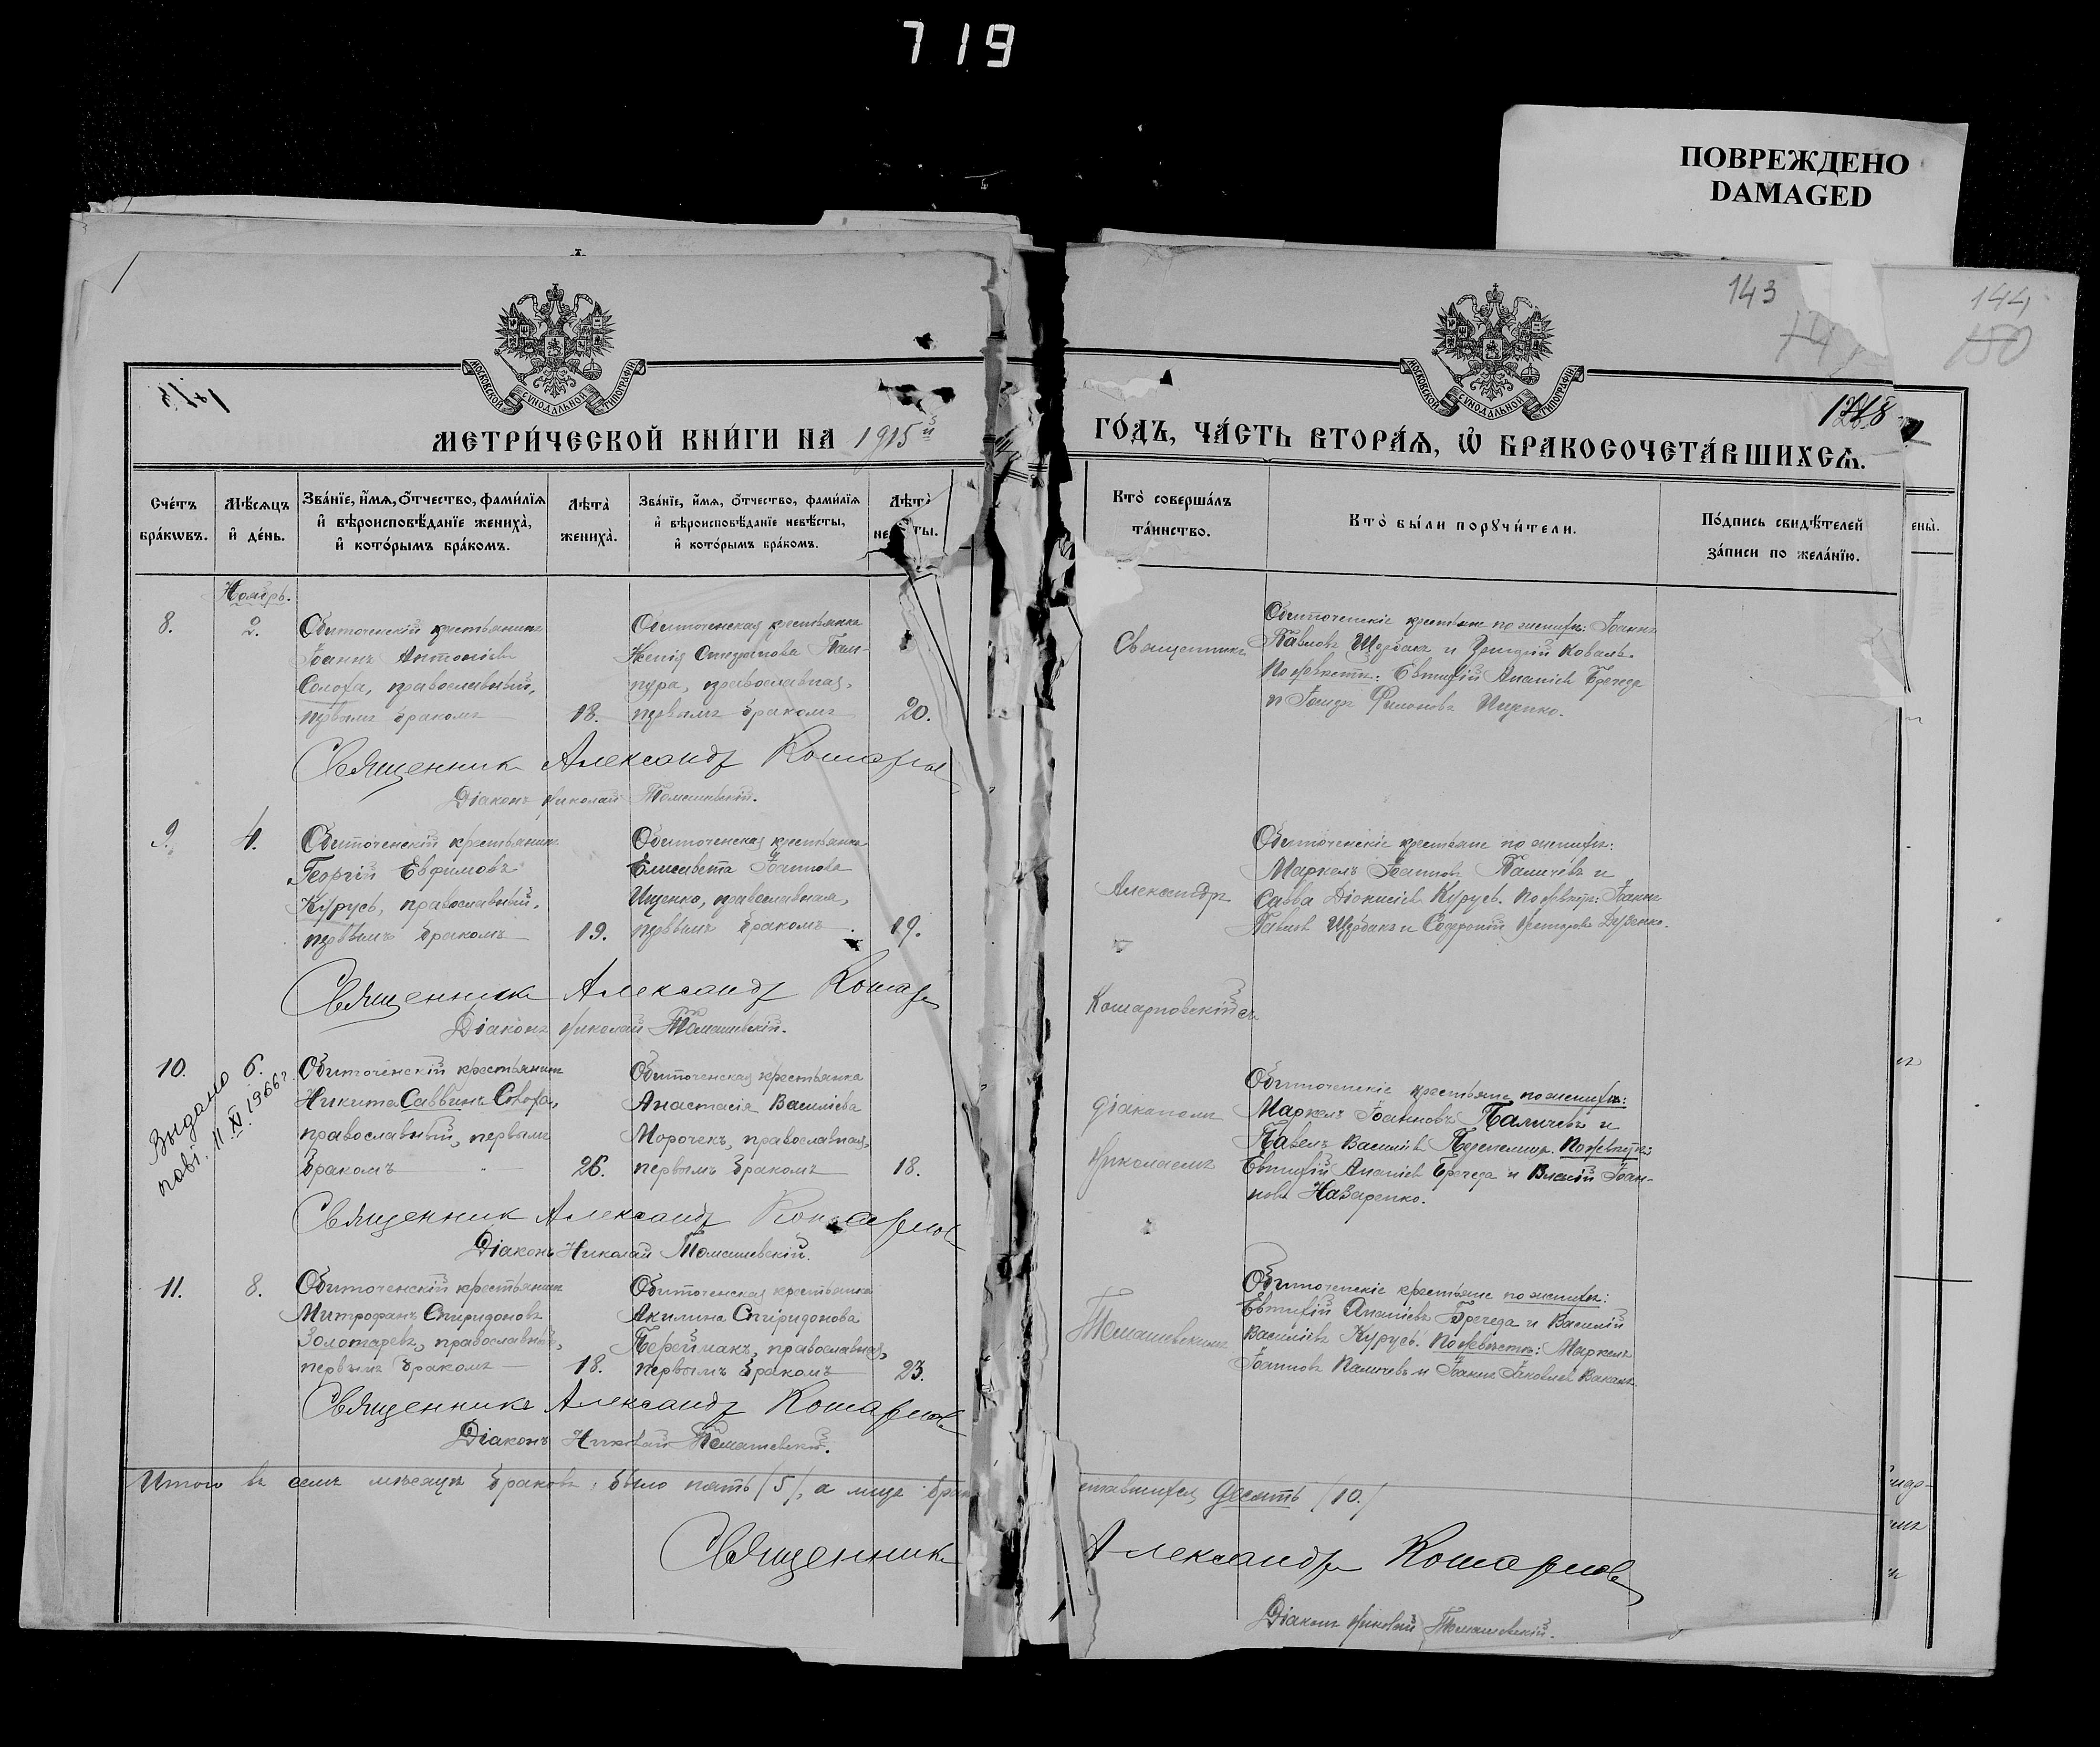 719
ПОВРЕЖДЕНО
DAMAGED
143
144
150
148
МОСКОВСКОЙ СУНОДАЛЬНОЙ ТИПОГРАФІИ
МОСКОВСКОЙ СУНОДАЛЬНОЙ ТИПОГРАФІИ
МЕТРИ́ЧЕСКОЙ КНИ́ГИ НА 1915й
ГО́ДЪ, ЧА́СТЬ ВТОРА́Я, Ѿ БРАКОСОЧЕТА́ВШИХСЯ.
Сче́тъ бра́кѡвъ.
Мѣ́сяцъ и де́нь.
Зва́нїе, и́мя, о́тчество, фами́лїя и вѣроисповѣ́данїе жениха̀, и кото́рымъ бра́комъ.
Лѣта̀ жениха̀.
Зва́нїе, и́мя, о́тчество, фами́лїя и вѣроисповѣ́данїе невѣ́сты, и кото́рымъ бра́комъ.
Лѣта̀ не ты.
Кто̀ соверша́лъ та́инство.
Кто̀ бы́ли порꙋчи́тели.
По́дпись свидѣ́телей за́писи по жела́нїю.
ены̀.
Ноябрь.
8.
2.
Обиточенскій крестьянинъ
Іоаннъ Антоніевъ
Солоха, православный,
первымъ бракомъ
18.
Обиточенская крестьянка
Ксенія Стефанова
православная,
первымъ бракомъ
20.
Священникъ
Обиточенскіе крестьяне по женихѣ: Іоаннъ
Павловъ Щербакъ и Коваль.
По невѣстѣ: Евтихій Ананіевъ Бречеда
и Филоновъ Ищенко.
Священникъ Александръ Кошарнов
Діаконъ Николай Томашевскій.
9.
4.
Обиточенскій крестьянинъ
Георгій Евфимовъ
Курусь, православный,
первымъ бракомъ
19.
Обиточенская крестьянка
Елисавета Іоаннова
Ищенко, православная,
первымъ бракомъ
19.
Александръ
Обиточенскіе крестьяне по женихѣ:
Маркелъ Іоанновъ Паличевъ и
Савва Діонисіевъ Курусь. По невѣстѣ: Іоаннъ
Павловъ Щербакъ и Софроній Несторовъ Дузенко.
Священникъ Александръ Кошар
Діаконъ Николай Томашевскій.
Кошарновскій съ
10.
6.
Обиточенскій крестьянинъ
Никита Саввинъ Солоха,
православный, первымъ
бракомъ
26.
Обиточенская крестьянка
Анастасія Василіева
Морочекъ, православная,
первымъ бракомъ
18.
Выдано
пові. 11.XI.1966 г.
діакономъ
Николаемъ
Обиточенскіе крестьяне по женихѣ:
Маркелъ Іоанновъ Паличевъ и
Павелъ Василіевъ Перепелица. По невѣстѣ:
Евтихій Ананіевъ Бречеда и Власій Іоан-
новъ Назаренко.
Священникъ Александръ Кошарнов
Діаконъ Николай Томашевскій.
11.
8.
Обиточенскій крестьянинъ
Митрофанъ Спиридоновъ
Золотаревъ, православный,
первымъ бракомъ
18.
Обиточенская крестьянка
Акилина Спиридонова
Переймакъ, православная,
первымъ бракомъ
23.
Томашевскимъ
Обиточенскіе крестьяне по женихѣ:
Евтихій Ананіевъ Бречеда и Василій
Василіевъ Курусь. По невѣстѣ: Маркелъ
Іоанновъ Паличевъ и Іоаннъ Іаковлевъ
Священникъ Александръ Кошарнов
Діаконъ Николай Томашевскій.
Итого въ семъ мѣсяцѣ браковъ было пять /5/, а лицъ брако
ставшихся десять /10./
Священникъ
Александръ Кошарнов
Діаконъ Николай Томашевскій.